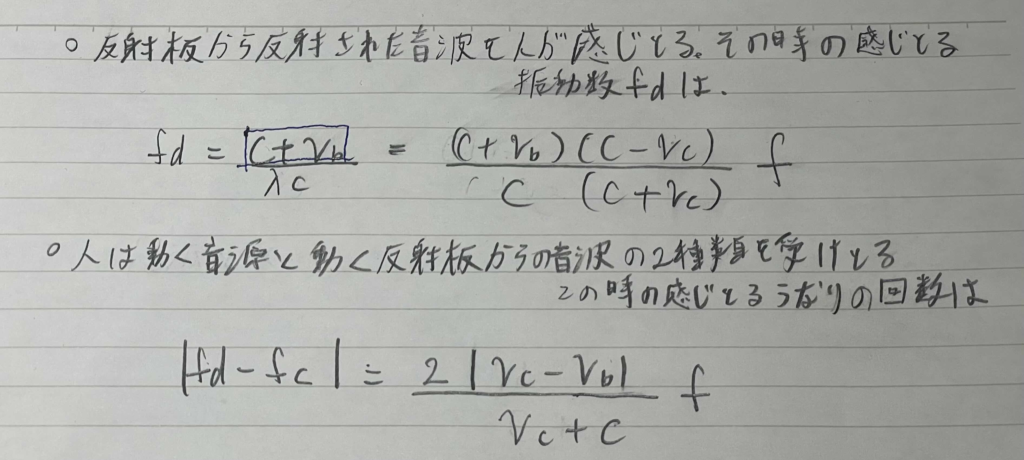 ○ 反射板から反射された音波を人が感じとる。その時の感じとる
振動数fdは.
fd = (C+Vb)/λc = (C+Vb)(C-Vc)/C(C+Vc) f
○ 人は動く音源と動く反射板からの音波の2種類を受けとる
この時の感じとるうなりの回数は
|fd-fc| = 2|Vc-Vb|/Vc+C f